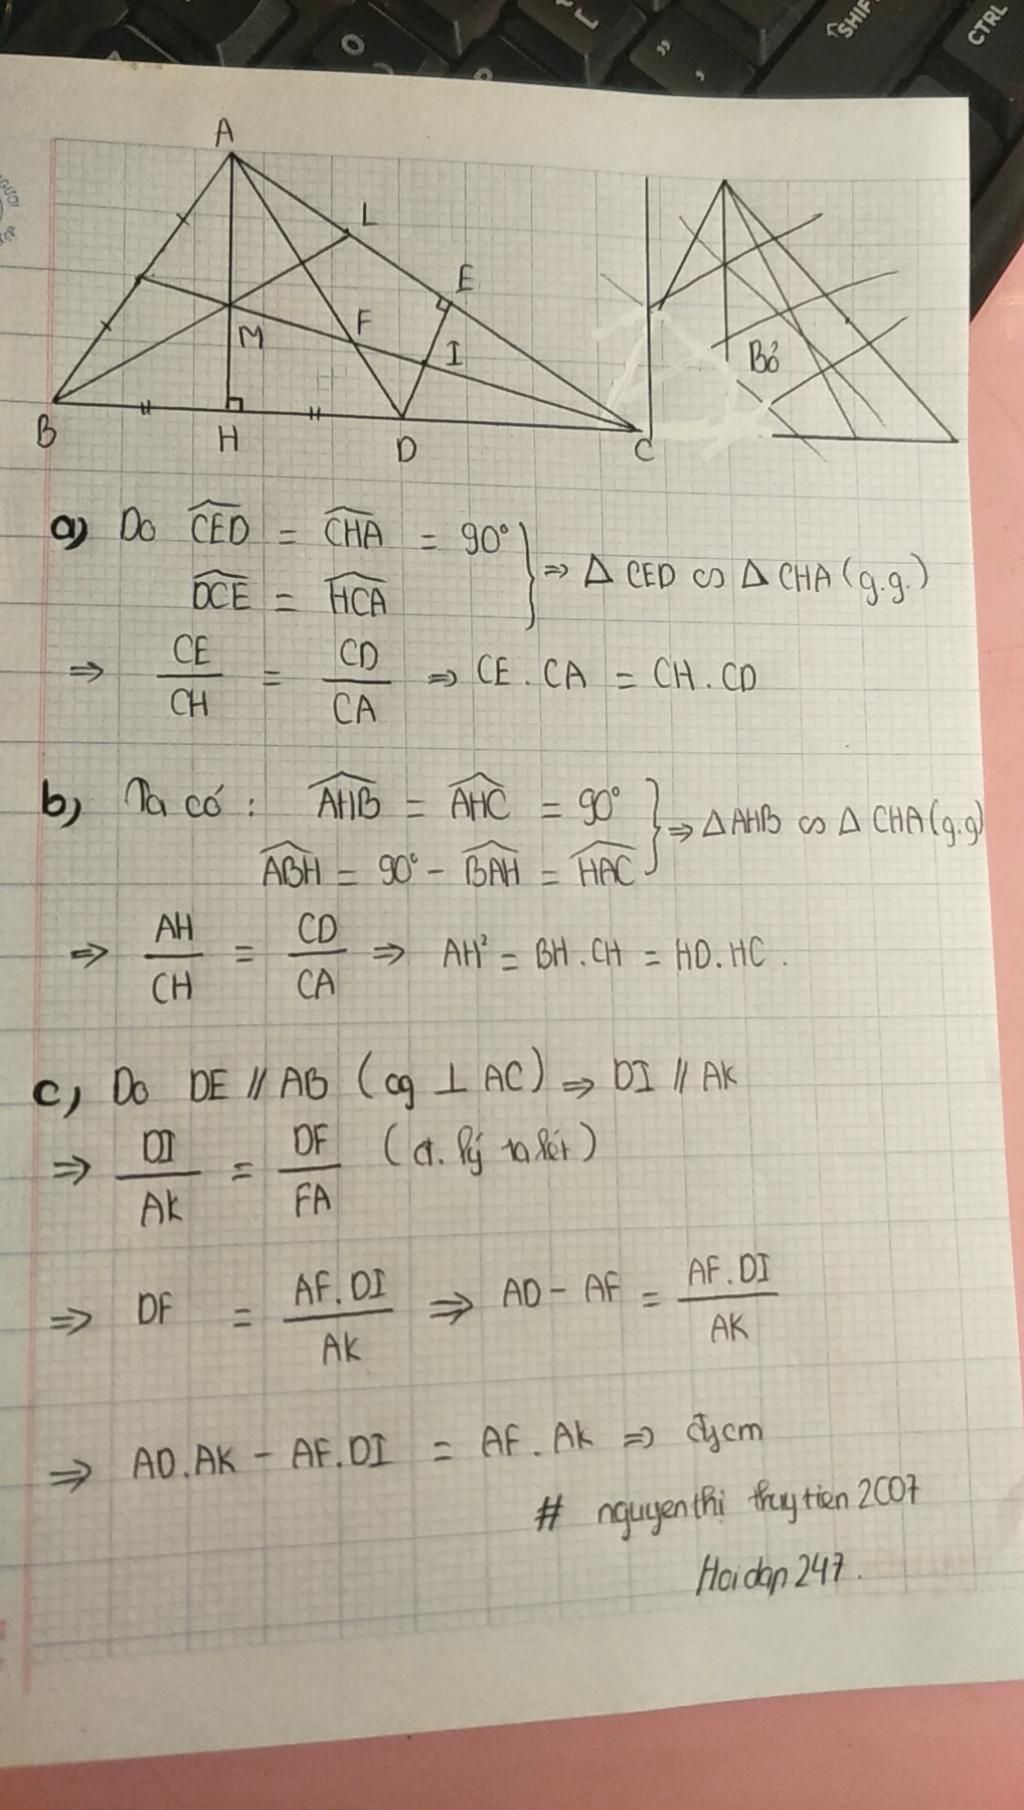 SHIFT
CTRL
A
L
E
F
M
I
B
H
D
C
Bỏ
a) Do CED = CHA = 90°
DCE = HCA
} ⇒ Δ CED ∽ Δ CHA (g.g.)
⇒ CE/CH = CD/CA ⇒ CE . CA = CH . CD
b) Ta có : AHB = AHC = 90°
ABH = 90° - BAH = HAC
} ⇒ Δ AHB ∽ Δ CHA (g.g)
⇒ AH/CH = CD/CA ⇒ AH² = BH . CH = HD . HC .
c) Do DE // AB (cg ⊥ AC) ⇒ DI // AK
⇒ DI/AK = DF/FA (đ. lý ta lét)
⇒ DF = AF.DI/AK ⇒ AD - AF = AF.DI/AK
⇒ AD.AK - AF.DI = AF . AK ⇒ đpcm
# nguyenthi thuytien2007
Hoidap247.